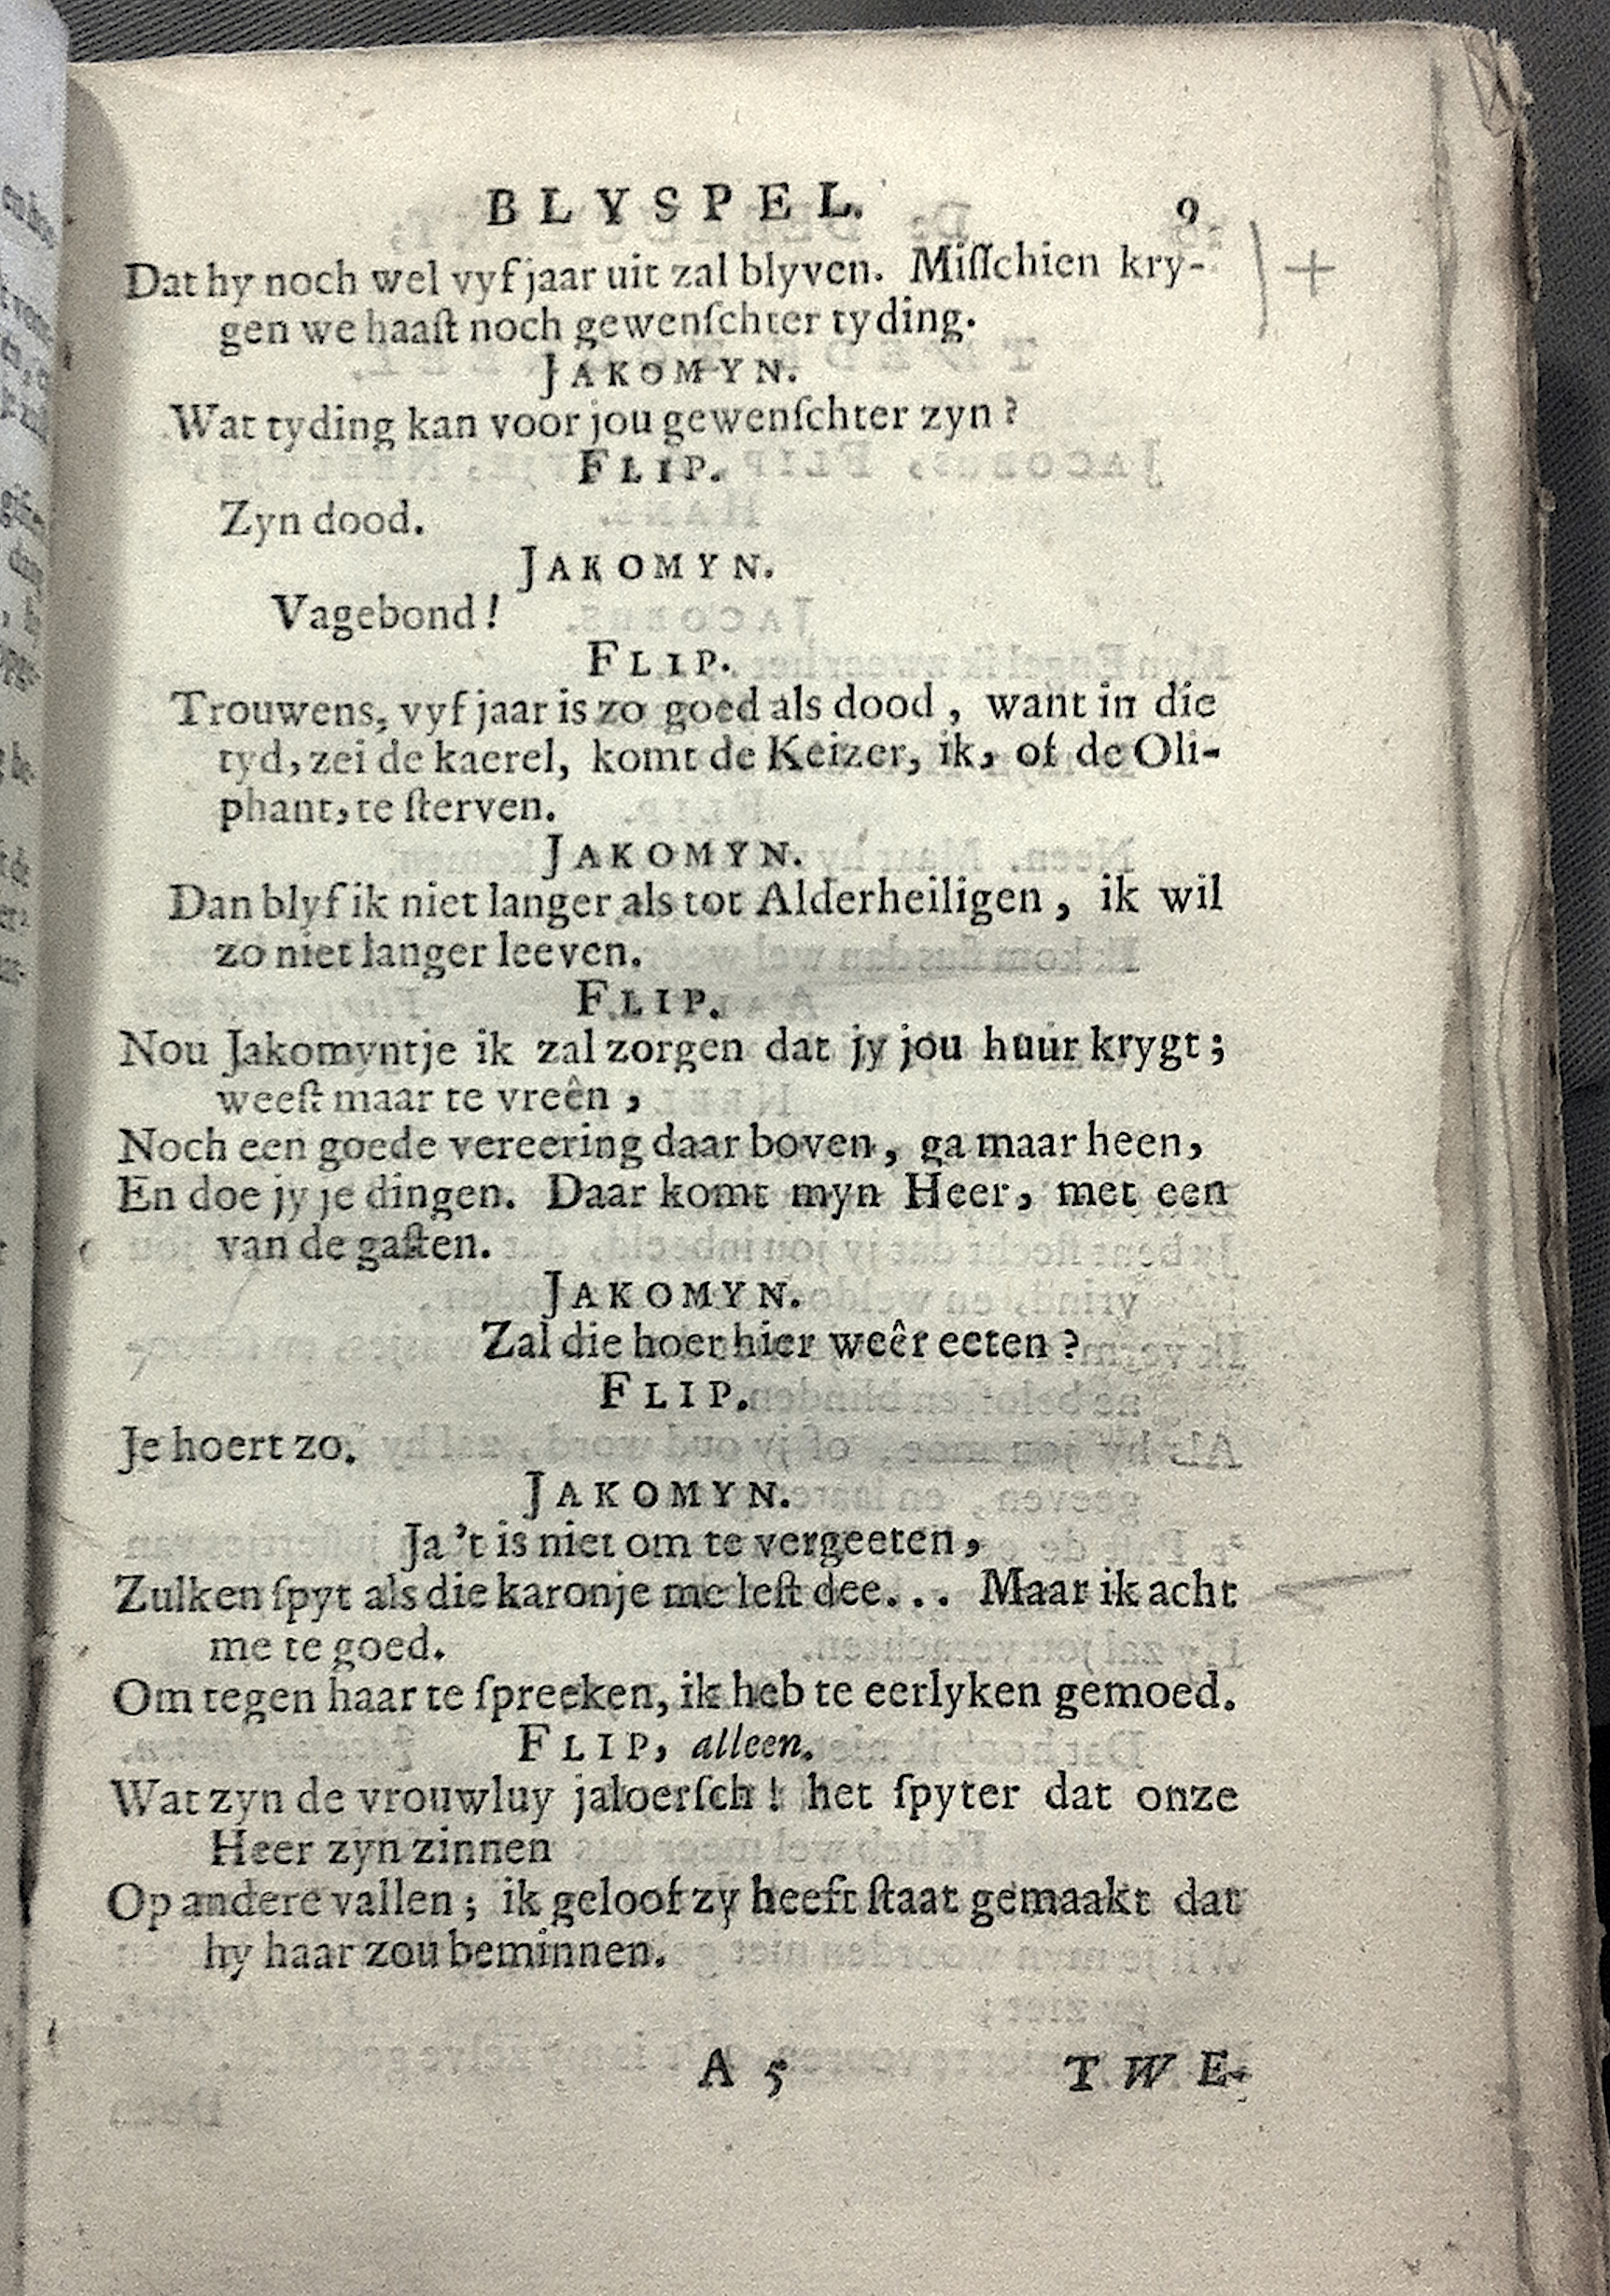 BLYSPEL. 9
Dat hy noch wel vyf jaar uit zal blyven. Miſſchien kry-
gen we haaſt noch gewenſchter tyding.
JAKOMYN.
Wat tyding kan voor jou gewenſchter zyn?
FLIP.
Zyn dood.
JAKOMYN.
Vagebond!
FLIP.
Trouwens, vyf jaar is zo goed als dood, want in die
tyd, zei de kaerel, komt de Keizer, ik, of de Oli-
phant, te ſterven.
JAKOMYN.
Dan blyf ik niet langer als tot Alderheiligen, ik wil
zo niet langer leeven.
FLIP.
Nou Jakomyntje ik zal zorgen dat jy jou huur krygt;
weeſt maar te vreên,
Noch een goede vereering daar boven, ga maar heen,
En doe jy je dingen. Daar komt myn Heer, met een
van de gaſten.
JAKOMYN.
Zal die hoer hier weêr eeten?
FLIP.
Je hoert zo.
JAKOMYN.
Ja 't is niet om te vergeeten,
Zulken ſpyt als die karonje me leſt dee... Maar ik acht
me te goed.
Om tegen haar te ſpreeken, ik heb te eerlyken gemoed.
FLIP, alleen.
Wat zyn de vrouwluy jaloerſch! het ſpyter dat onze
Heer zyn zinnen
Op andere vallen; ik geloof zy heeft ſtaat gemaakt dat
hy haar zou beminnen.
A 5 TWE-